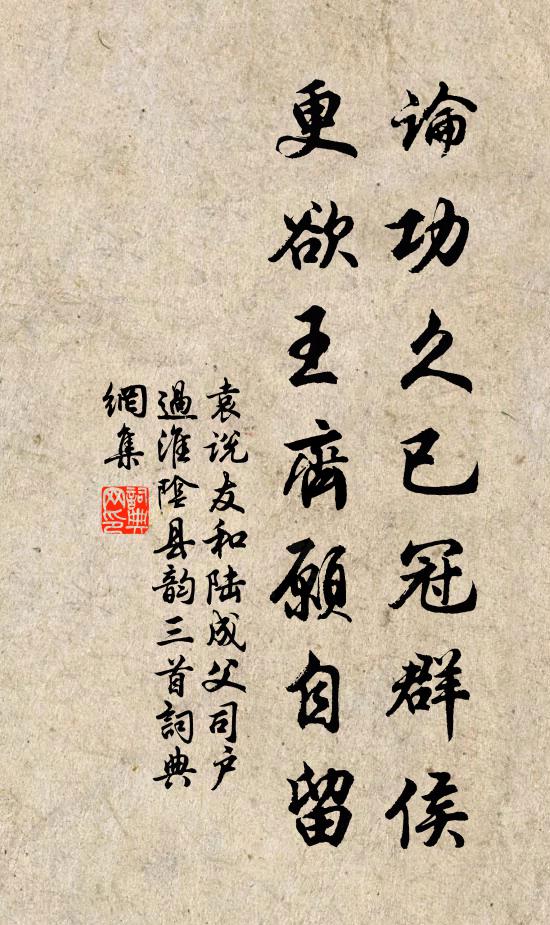 論功久已冠群侯
更欲王齊願自留
袁说友和陆成父司户
過淮陰县韵三首詞典
網集
詞典网印